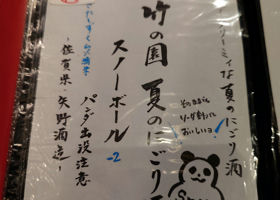 クリーミィな夏のにごり酒
竹の園 夏のにごり酒
スノーボール
-2
パンダ出没注意
-佐賀県・矢野酒造-
そのままでも
ソーダ割りでも
おいしいヨ